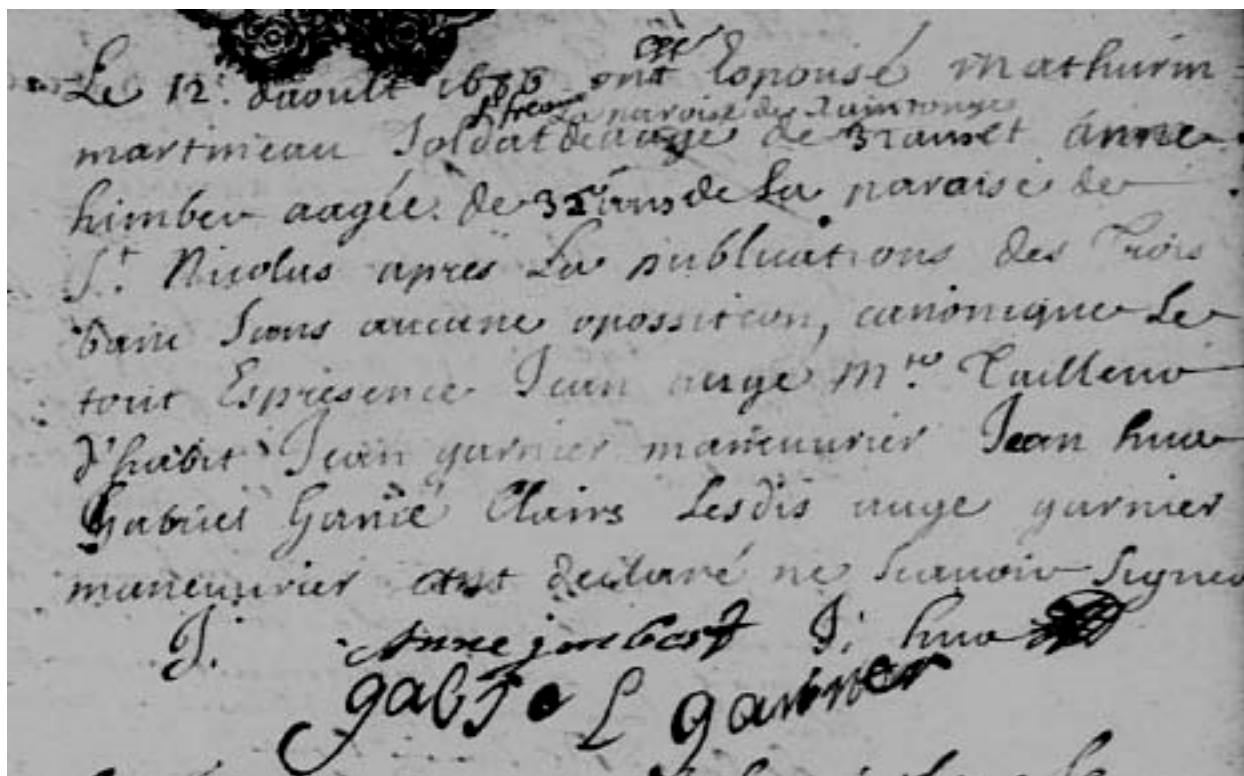 esté
Le 12.e daoult 1686 ont Espousé mathurin
La paroise des Xaintonge
martineau Soldat de aagé de 31 ans et anne
himber aagée de 32 ans de La paraise de
St. Nicolas apres La publications des Trois
banc Sans aucune oposition, canonique Le
tout Espresence Jean augé Mtre Tailleur
d'habit Jean garnier maneuvrier Jean hue
Gabriel Garnië Clairs Lesdis augé garnier
maneuvrier ont declaré ne Scauoir Signer
J. Anne jmbert J: hue
gabriel garnier